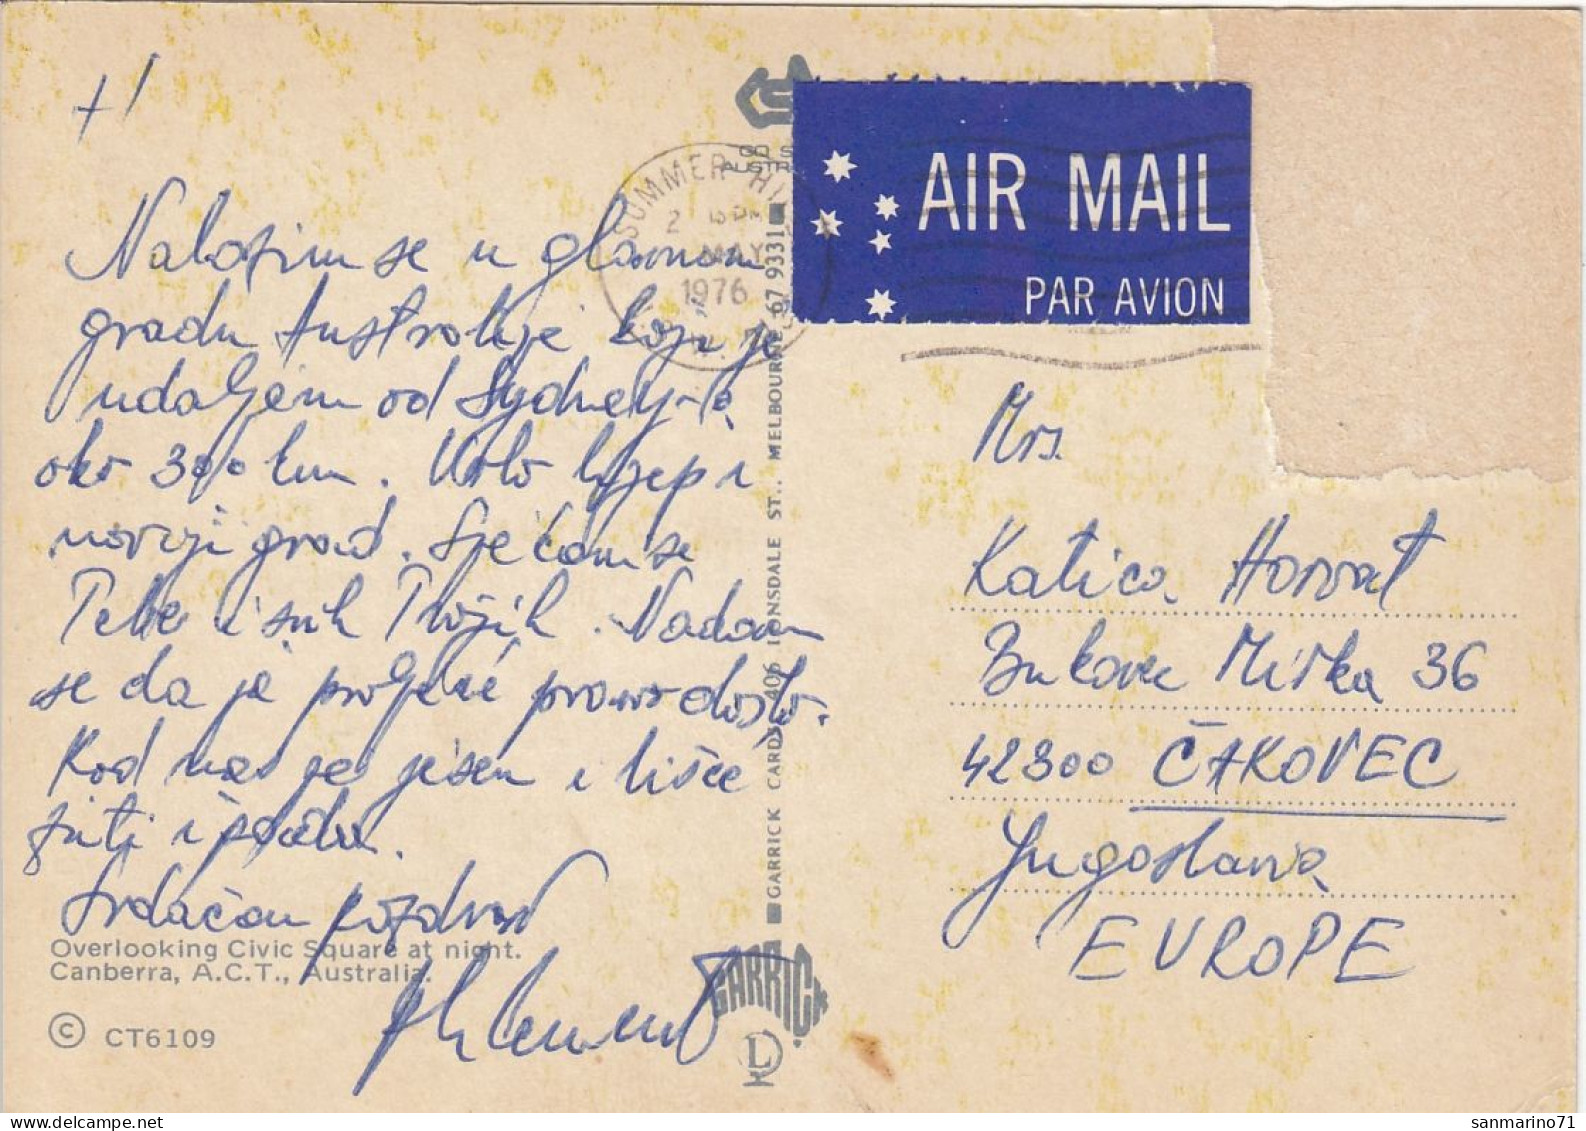 +1
Nalazim se u glavnom
gradu Australije koji je
udaljen od Sydney-a
oko 300 km. Vrlo lijep i
noviji grad. Sjećam se
Tebe i svih Tvojih. Nadam
se da je proljeće pravo došlo.
Kod nas je jesen i lišće
žuti i pada.
Srdačan pozdrav
Overlooking Civic Square at night.
Canberra, A.C.T., Australia.
© CT6109
SUMMER HI
2
MAY
1976
GO S
AUSTR
GARRICK CARDS 406 LONSDALE ST., MELBOURNE 67 9331
GARRICK
L
AIR MAIL
PAR AVION
Mrs.
Katica Horvat
Bukovec Mirka 36
42300 ČAKOVEC
Jugoslavia
EUROPE
sanmarino71